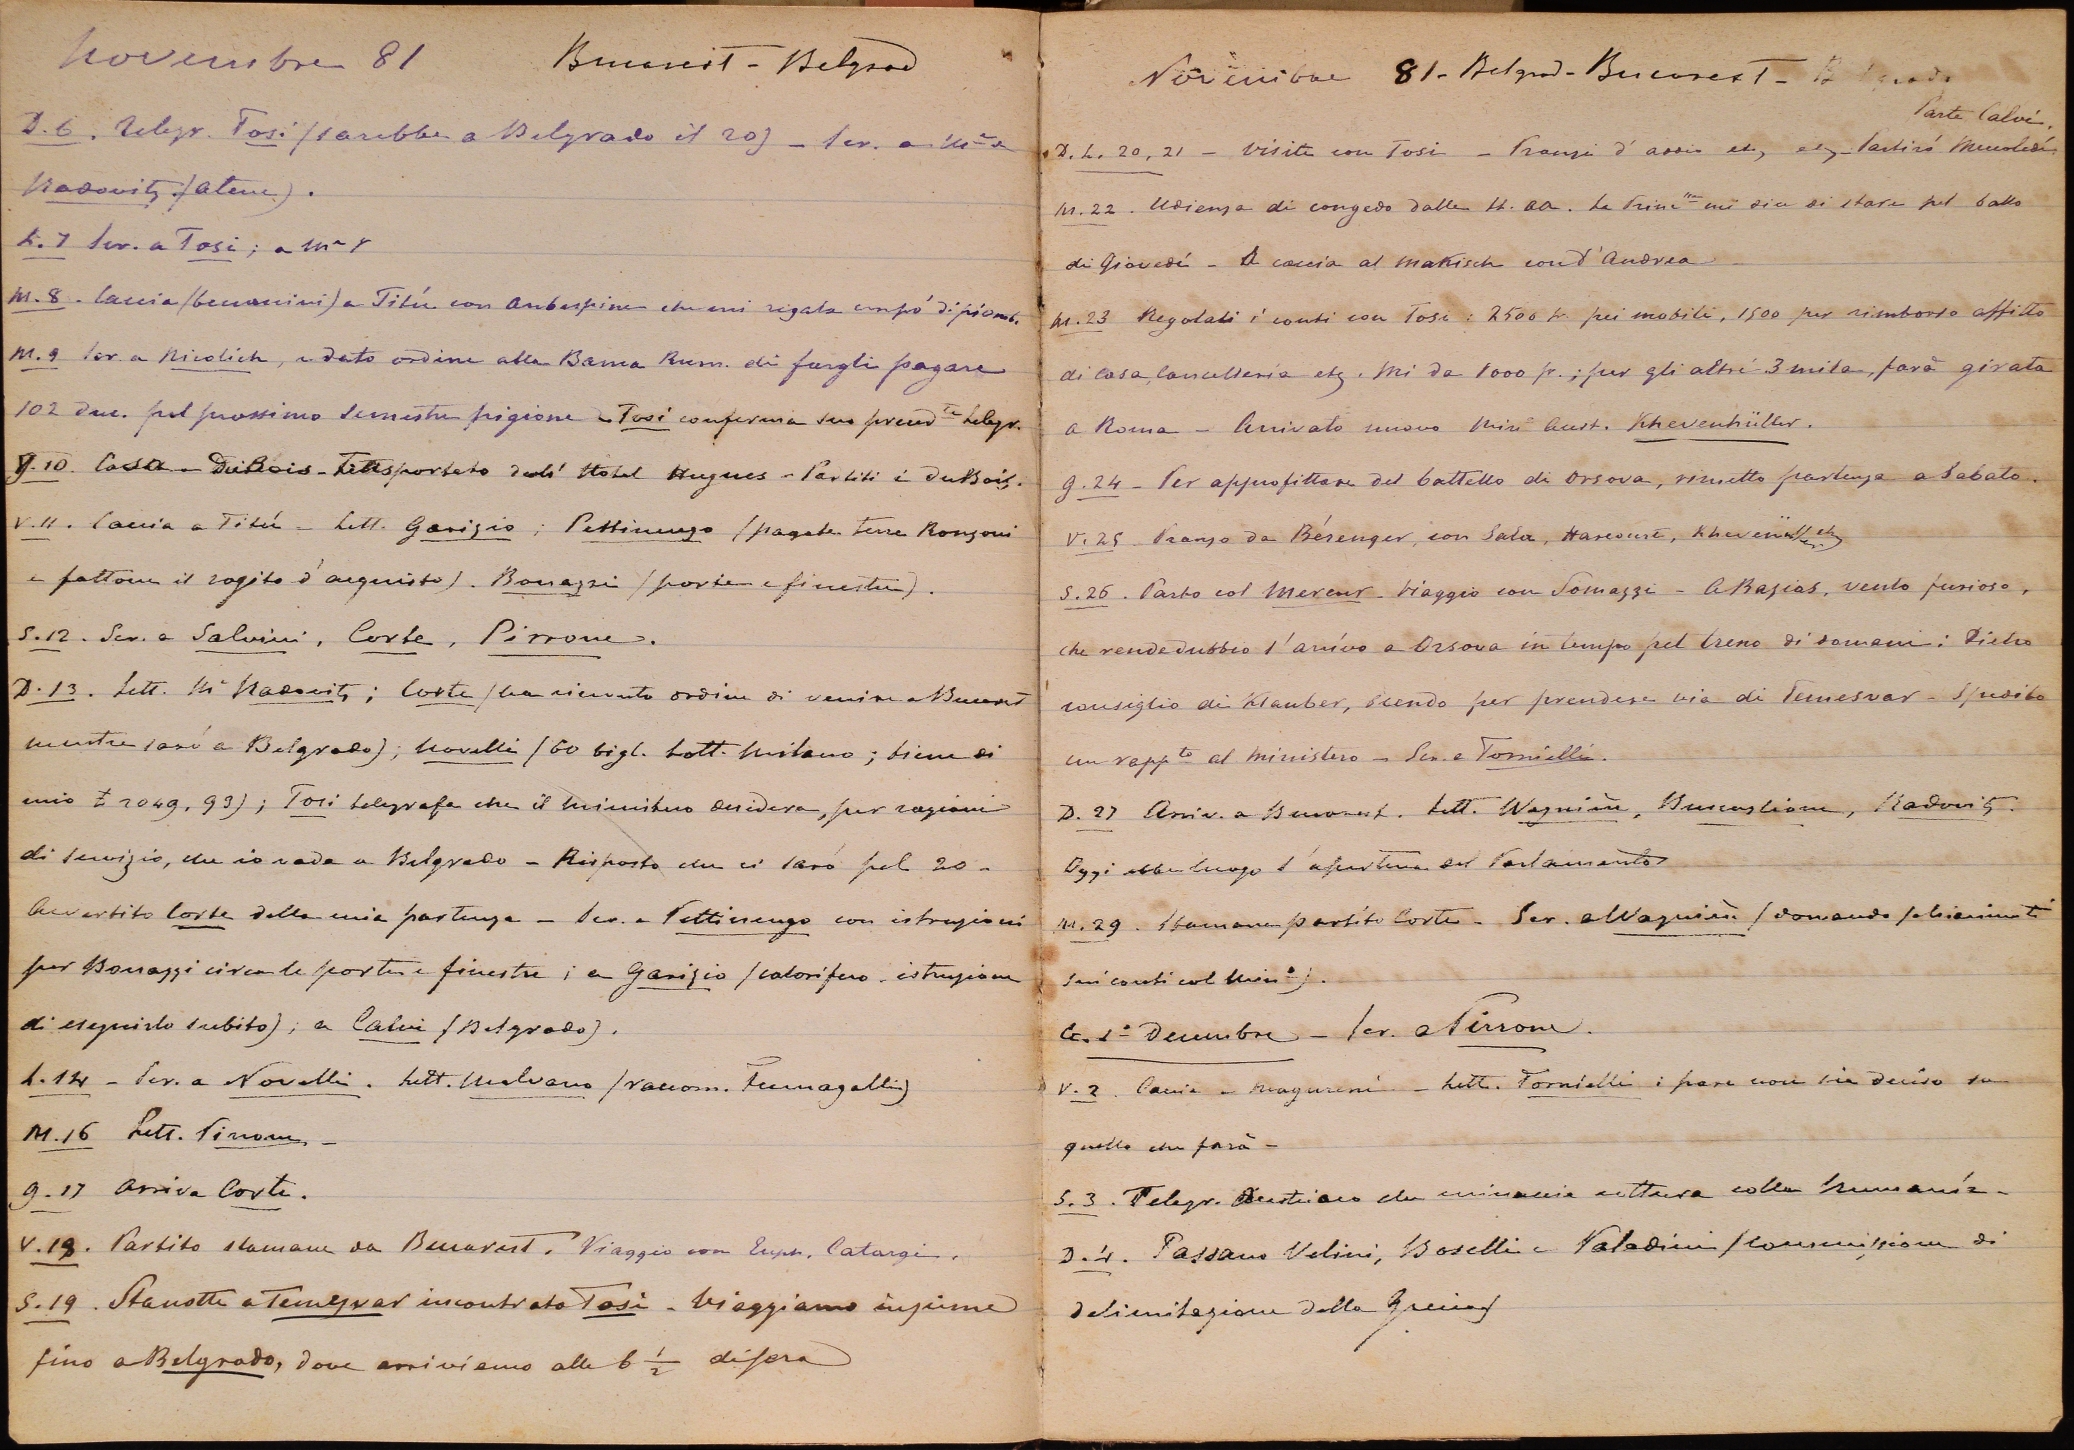 Novembre 81 Bucarest - Belgrad
D. 6. Telegr. Tosi (sarebbe a Belgrado il 20) - Scr. a
Radovitz (Atene).
L. 7 Scr. a Tosi; a
M. 8. Caccia (beccaccini) a Titú con Aubespine che mi regala un pó di piomb.
M. 9 Scr. a Nicolich, e dato ordine alla Banca Rum. di fargli pagare
102 duc. pel prossimo semestre pigione - Tosi conferma suo preced.te telegr.
G. 10. Casa - DuBois - Trasportato dall' Hotel Hugues - Partiti i DuBois.
V. 11. Caccia a Titú - Lett. Garizio; Pettinengo (pagate terre Ronzoni
e fattone il rogito d'acquisto). Bonazzi (porte e finestre).
S. 12. Scr. a Salvini, Corte, Pirrone.
D. 13. Lett. Radovitz; Corte (ha ricevuto ordine di venire a Bucarest
mentre saró a Belgrado); Novelli (60 bigl. Lott. Milano; tiene di
mio £ 2049,93); Tosi telegrafa che il ministero desidera, per ragioni
di servizio, che io vada a Belgrado - Risposto che ci saró pel 20 -
Avvertito Corte della mia partenza - Scr. a Pettinengo con istruzioni
per Bonazzi circa le porte e finestre; a Garizio (calorifero - istruzione
di eseguirlo subito); a Calvi (Belgrado).
L. 14 - Scr. a Novelli. Lett. Malvano (raccom. Fumagalli)
M. 16 Lett. Pirrone -
G. 17 Arriva Corte.
V. 18. Partito stamane da Bucarest. Viaggio con Euph. Catargi.
S. 19. Stanotte a Temesvar incontrato Tosi - Viaggiamo insieme
fino a Belgrado, dove arriviamo alle 6 1/2 di sera
Novembre 81 - Belgrad - Bucarest - Belgrado
Parte Calvi.
D. L. 20, 21 - Visite con Tosi - Pranzi d'addio etz, etz - Partiró Mercoledí
M. 22. Udienza di congedo dalle LL. AA. La Princ.ssa mi dice di stare pel ballo
di Giovedí - A caccia al Makisch con d'Andrea -
M. 23 Regolati i conti con Tosi: 2500 fr. pei mobili, 1500 per rimborso affitto
di casa, cancelleria etz. Mi da 1000 fr.; per gli altri 3 mila, farà girata
a Roma - Arrivato nuovo Min. Aust. Khevenhüller.
G. 24 - Per approfittare del battello di Orsova, rimetto partenza a Sabato.
V. 25 Pranzo da Bérenger, con Sala, Harcourt, Khevenhüller etz
S. 26. Parto col Mercur - Viaggio con Somazzi - A Bazias, vento furioso,
che rende dubbio l'arrivo a Orsova in tempo pel treno di domani: Dietro
consiglio di Klauber, scendo per prendere via di Temesvar - Spedito
un rapp.to al Ministero - Scr. a Tornielli.
D. 27 Arriv. a Bucarest. Lett. Wagnière, Buscaglione, Radovitz.
Oggi ebbe luogo l'apertura del Parlamento
M. 29. Stamane partito Corte - Scr. a Wagnière (domando schiarimenti
sui conti col Min.o).
G. 1o Decembre - Scr. a Pirrone.
V. 2. Caccia a Magureni - Lett. Tornielli: pare non sia deciso su
quello che farà -
S. 3. Telegr. che minaccia rottura colla Rumanía -
D. 4. Passano Velini, Boselli e Paladini (commissione di
delimitazione della Grecia)